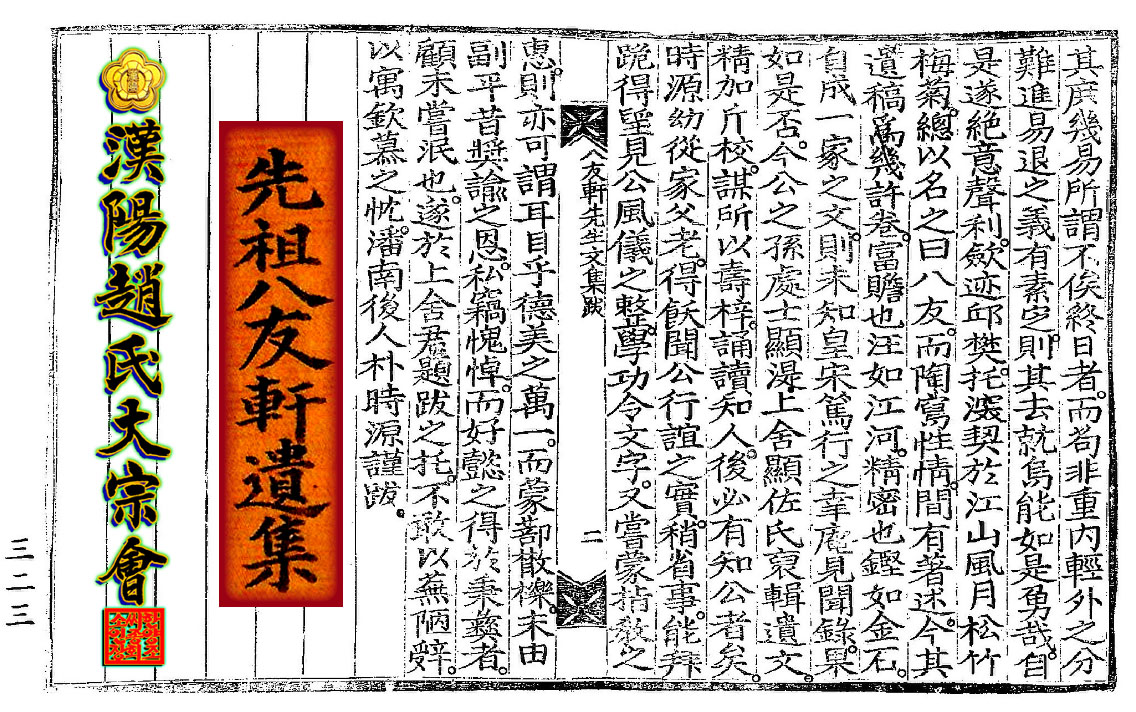 其庶幾易所謂不俟終日者。而苟非重內輕外之分
難進易退之義有素定。則其去就烏能如是勇哉。自
是遂絕意聲利。斂迹邱樊。托深契於江山風月松竹
梅菊。總以名之曰八友。而陶寫性情。間有著述。今其
遺稿爲幾許卷。富贍也汪如江河。精密也鏗如金石。
自成一家之文。則未知皇宋篤行之幸庵見聞錄。果
如是否。今公之孫處士顯湜上舍顯佐氏裒輯遺文。
精加斤校。謀所以壽梓。誦讀知人。後必有知公者矣。
時源幼從家父老。得飫聞公行誼之實。稍省事。能拜
跪得望見公風儀之整。學功令文字。又嘗蒙指敎之
八友軒先生文集跋
二
惠。則亦可謂耳目乎德美之萬一。而蒙鄙散櫟。末由
副平昔奬諭之恩。私竊愧悼。而好懿之得於秉彝者。
顧未嘗泯也。遂於上舍君題跋之托。不敢以蕪陋辭。
以寓欽慕之忱。潘南後人朴時源謹跋。
先祖八友軒遺集
漢陽趙氏大宗會
三二三